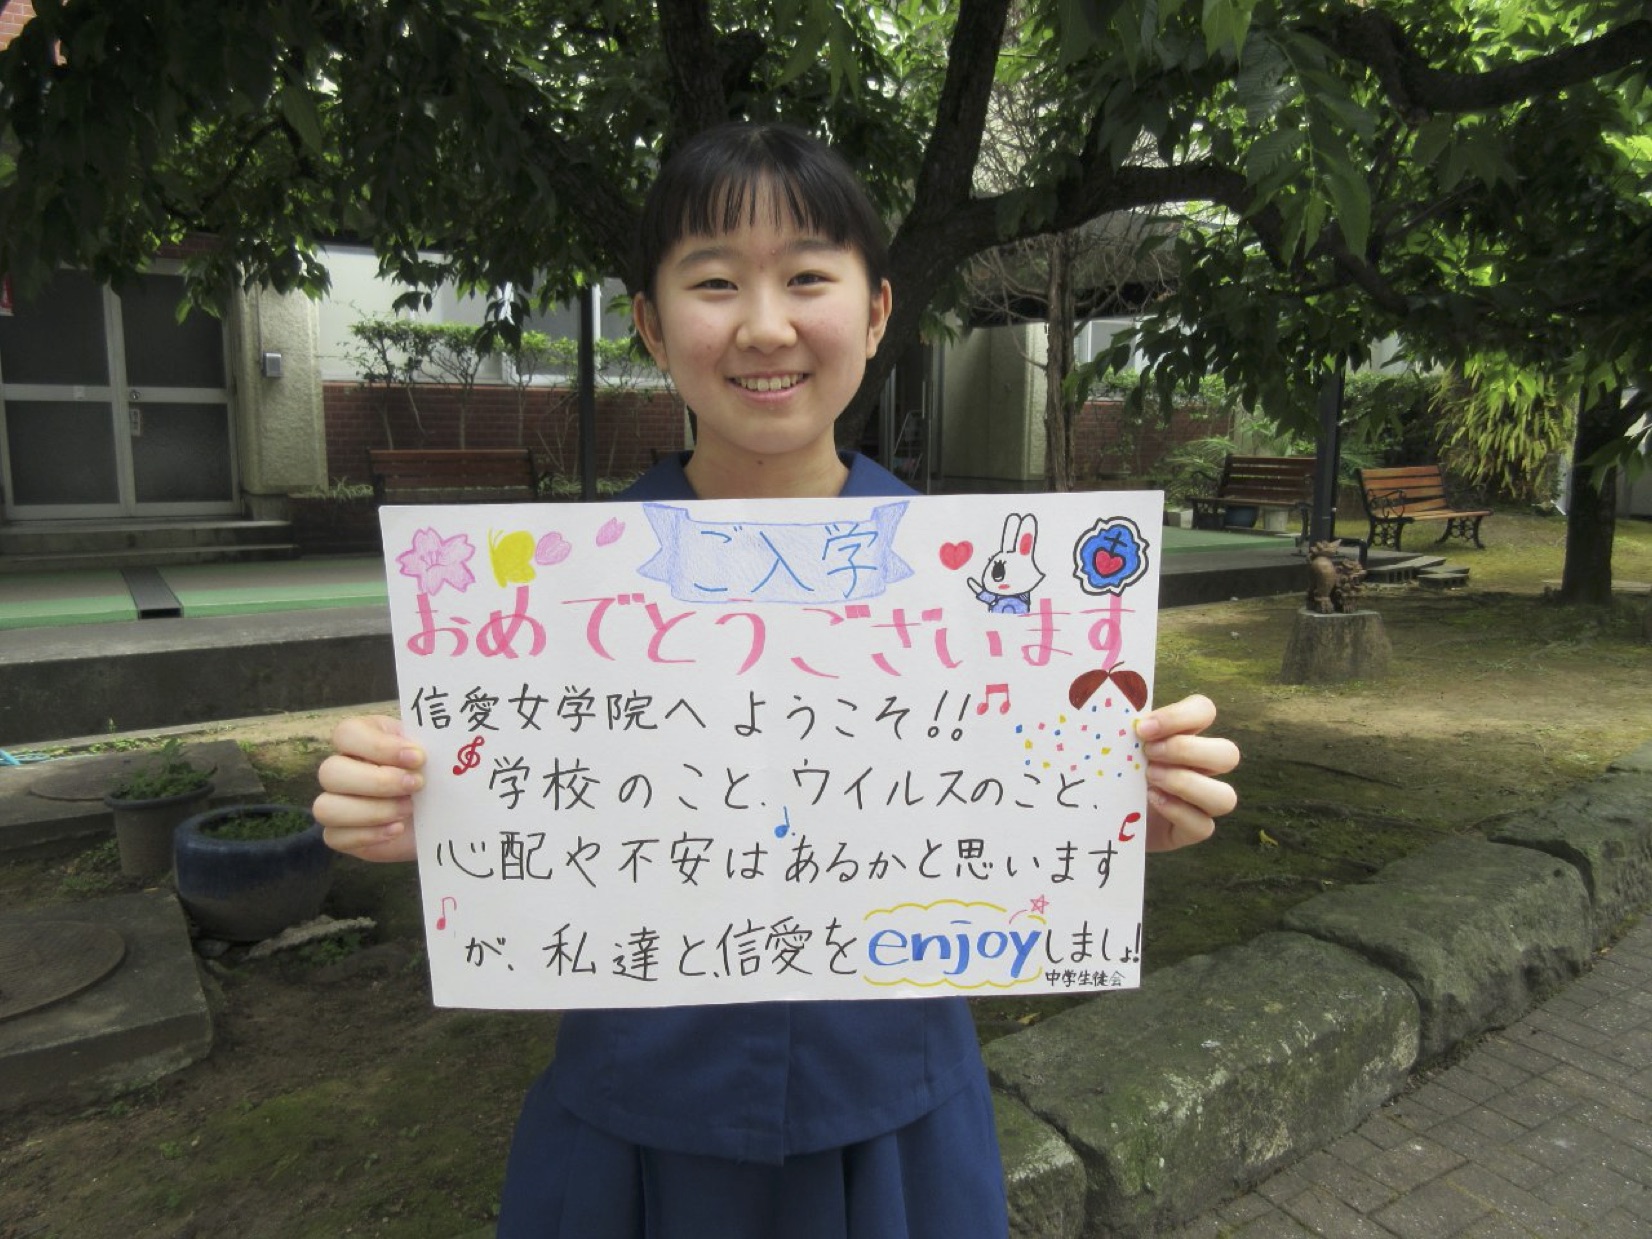 ご入学
おめでとうございます
信愛女学院へようこそ!!
学校のこと、ウイルスのこと、
心配や不安はあるかと思います
が、私達と、信愛をenjoyしましょ!
中学生徒会